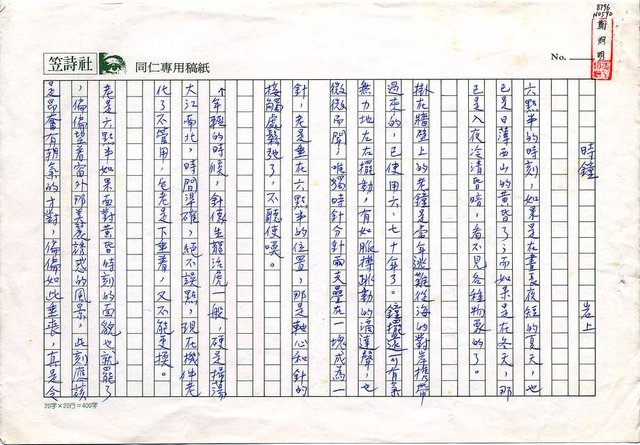 8796
N0590
鄭烱明
笠詩社
同仁專用稿紙
No.
時鐘
岩上
六點半的時刻，如果是在晝長夜短的夏天，也
已是日薄西山的黃昏了；而如果是在冬天，那
已是入夜冷清昏暗，看不見各種物象的了。
掛在牆壁上的老鐘是當年逃難從海的對岸攜帶
過來的，已使用六、七十年了。鐘擺還可有氣
無力地左右擺動，有如脈搏跳動的滴達聲，也
微微而聞，唯獨時針分針兩支疊在一塊成為一
針，老是垂在六點半的位置，那是軸心和針的
接觸處鬆弛了，不聽使喚。
年輕的時候，針像生龍活虎一般，硬是掃蕩
大江南北，時間準確，絕不誤點，現在機件老
化了不管用，包老是下垂着，又不能更換。
老是六點半，如果面對黃昏時刻的面貌也就罷了
，偏偏望着窗外那美麗誘惑的風景，此刻應該
是昂奮有朝氣的才對，偏偏如此垂喪，真是令
20字×20行＝400字